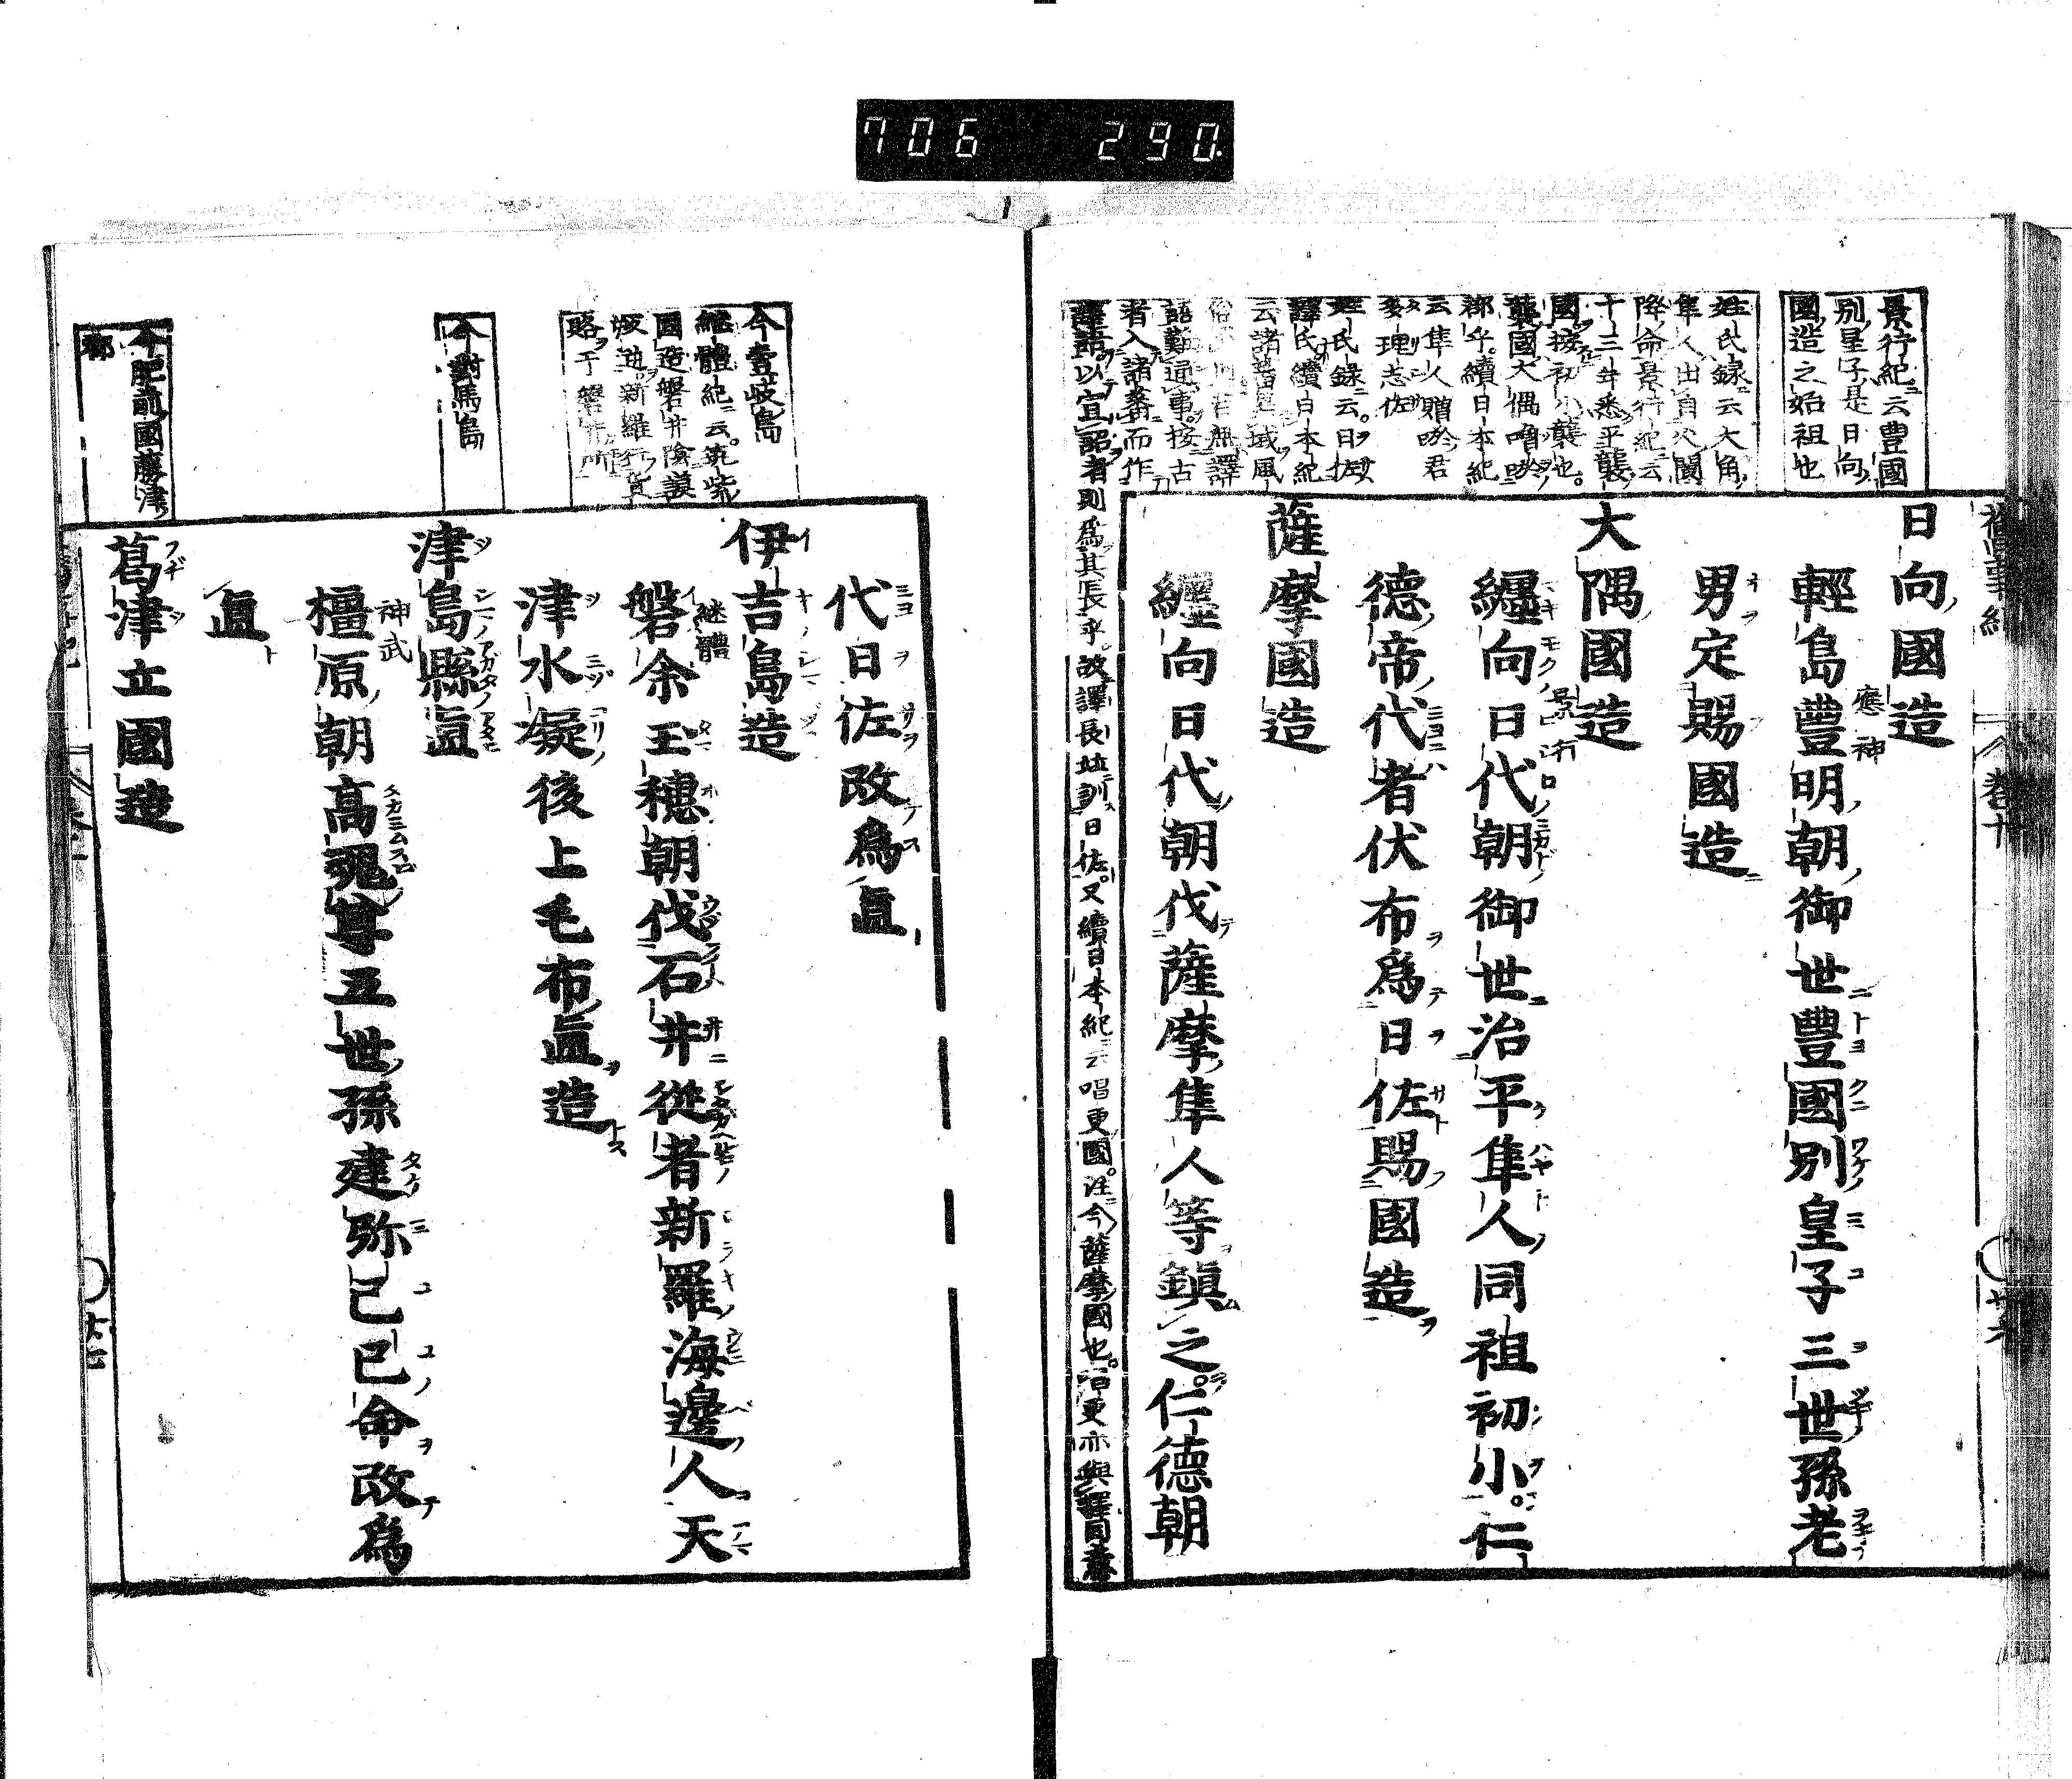 706 290
舊事紀
卷十
景行紀云豊國
別皇子是日向
國造之始祖也
姓氏録云大角
隼人出自火闌
降命景行紀云
十三年悉平襲
國按初小襲也
襲國大偶噌唹
郡乎續日本紀
云隼人贈唹君
多理志佐
姓氏録云日佐
譯氏續日本紀
語難通事按古
者入諸蕃而作
譯語以宣詔者則爲其長乎故譯長竝訓日佐又續日本紀云唱更國注今薩摩國也唱更亦與譯同意
日向國造
輕島豐明朝御世豐國別皇子三世孫老
應神
男定賜國造
大隅國造
纏向日代朝御世治平隼人同祖初小仁
景行
德帝代者伏布爲日佐賜國造
薩摩國造
纏向日代朝伐薩摩隼人等鎭之仁德朝
今壹岐島
繼體紀云筑紫
國造磐井陰謨
叛逆新羅行貨
賂于磐井所
今對馬島
今肥前國藤津
郡
代日佐改爲直
伊吉島造
磐余玉穗朝伐石井從者新羅海邊人天
継體
津水凝後上毛布直造
津島縣直
橿原朝高魂尊五世孫建弥己己命改爲
神武
直
葛津立國造